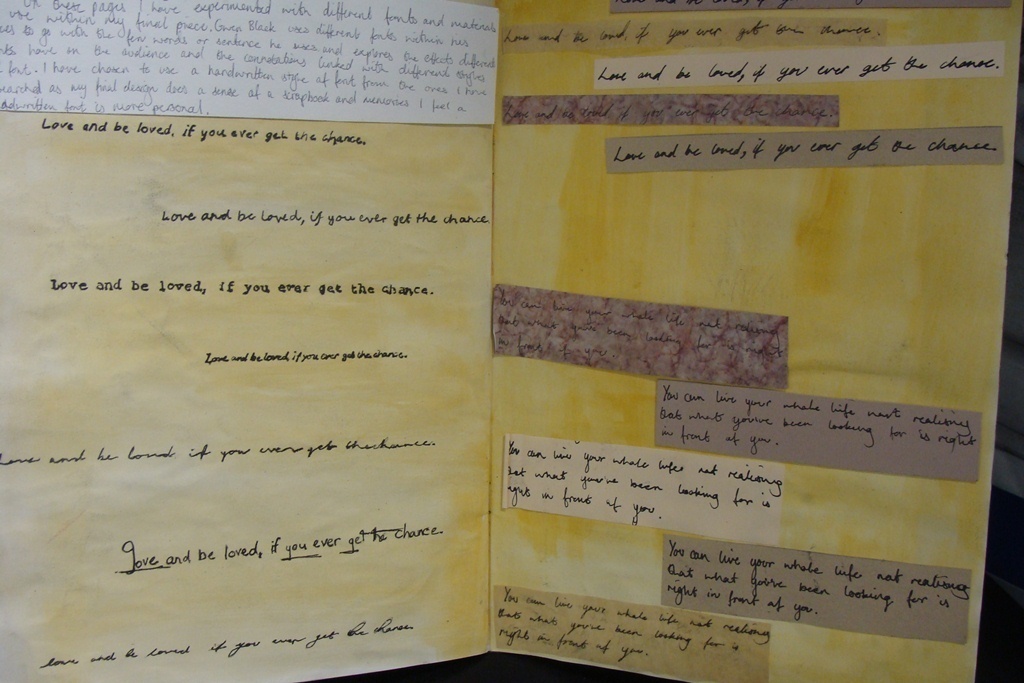 On these pages I have experimented with different fonts and materials
use within my final piece. Gwen Black uses different fonts within her
to go with the few words or sentence he uses and explores the effects different
have on the audience and the connotations linked with different styles
font. I have chosen to use a handwritten style of font from the ones I have
as my final design does a sense of a scrapbook and memories I feel a
font is more personal.
Love and be loved, if you ever get the chance.
Love and be loved, if you ever get the chance
Love and be loved, if you ever get the chance.
Love and be loved, if you ever get the chance.
Love and be loved if you ever get the chance.
Love and be loved, if you ever get the chance.
love and be loved if you ever get the chance
Love and be loved, if you ever get the chance.
Love and be loved, if you ever get the chance.
Love and be loved if you ever get the chance.
Love and be loved, if you ever get the chance
You can live your whole life not realising
that what you've been looking for is right
in front of you.
You can live your whole life not realising
that what you've been looking for is right
in front of you.
You can live your whole life not realising
that what you've been looking for is
right in front of you.
You can live your whole life not realising
that what you've been looking for is
right in front of you.
You can live your whole life not realising
that what you've been looking for is
right in front of you.